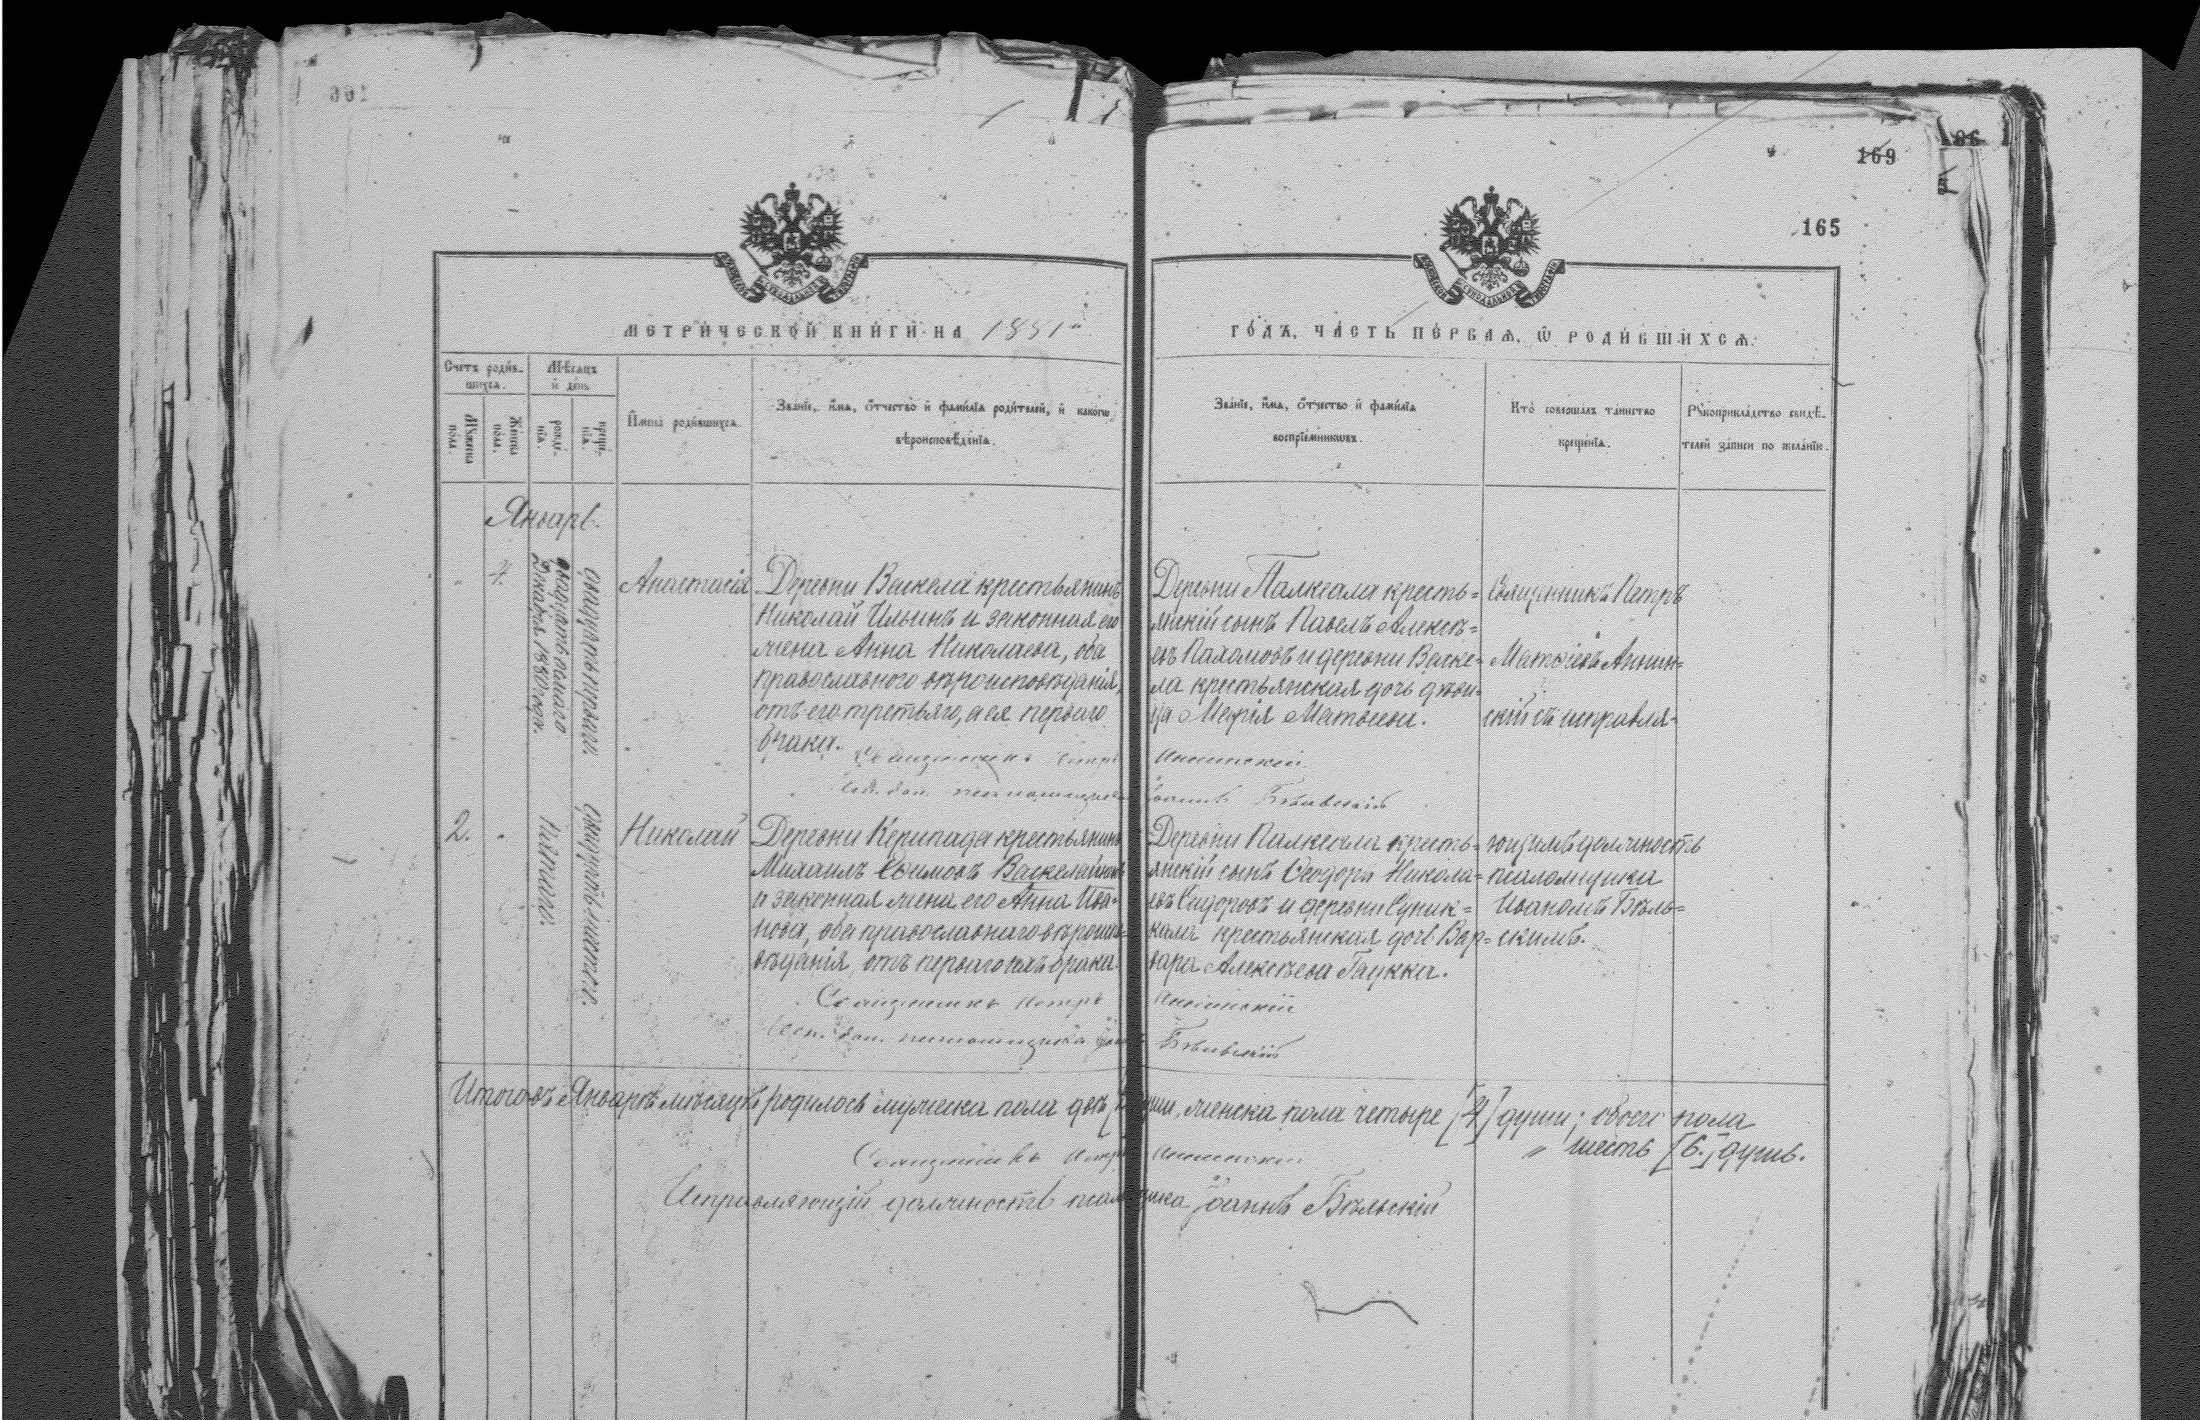 169
165
МЕТРИ́ЧЕСКОЙ КНИ́ГИ НА 1881 й
ГО́ДЪ, ЧА́СТЬ ПЕ́РВАѦ, Ѡ РОДИ́ВШИХСѦ.
Счетъ роди́в-
шихсѧ.
Мѣсѧцъ
и҆ де́нь
Мꙋ́жеска
по́ла.
Же́нска
по́ла.
рожде́-
нїѧ.
креще́-
нїѧ.
И҆мена̀ роди́вшихсѧ.
Зва́нїе, и҆́мѧ, ѻ҆́тчество и҆ фами́лїѧ роди́телей, и҆ како́гѡ
вѣроисповѣ́данїѧ.
Зва́нїе, и҆́мѧ, ѻ҆́тчество и҆ фами́лїѧ
воспрїе́мникѡвъ.
Кто̀ соверша́лъ та́инство
креще́нїѧ.
Рꙋкоприкла́дство свидѣ́-
телей за́писи по жела́нїю.
Январь.
4.
Декабря 1880 года.
двадцать перваго.
Анастасія
Деревни Васкела крестьянинъ
Николай Ильинъ и законная его
жена Анна Николаева, оба
православнаго вѣроисповѣданія,
отъ его третьяго, а ея перваго
брака.
Деревни Палкеала кресть=
янскій сынъ Павелъ Алексѣ=
евъ Пахомовъ и деревни Васке=
ла крестьянская дочь дѣви=
ца Марія Матвѣева.
Священникъ Петръ
Матѳіевъ Аннин=
скій съ исправля=
Священникъ Петръ Аннинскій
Исп. дол. псаломщика Іоаннъ Бѣльскій
2.
пятаго.
двадцать шестаго.
Николай
Деревни Керипада крестьянинъ
Михаилъ Ефимовъ Васкелайненъ
и законная жена его Анна Ива=
нова, оба православнаго вѣроиспо=
вѣданія, отъ перваго ихъ брака.
Деревни Палкеала кресть=
янскій сынъ Ѳеодоръ Никола=
евъ Сидоровъ и деревни Суник=
кала крестьянская дочь Вар=
вара Алексѣева Гаукка.
ющимъ должность
псаломщика
Иваномъ Бѣль=
скимъ.
Священникъ Петръ Аннинскій
Исп. дол. псаломщика Іоаннъ Бѣльскій
Итого въ Январѣ мѣсяцѣ родилось мужеска пола двѣ души, женска пола четыре [4] души; обоего пола
" шесть [6.] душъ.
Священникъ Петръ Аннинскій
Исправляющій должность псаломщика Іоаннъ Бѣльскій